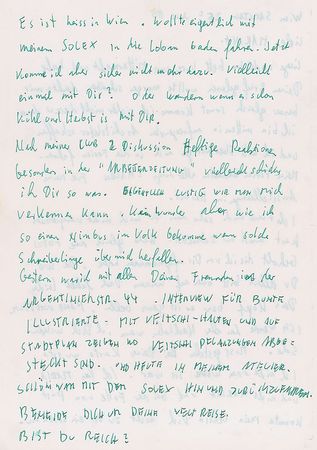 Es ist heiss in Wien. Wollte eigentlich mit
meinem SOLEX in die Lobau baden fahren. Jetzt
komme ich aber sicher nicht mehr dazu. Vielleicht
einmal mit Dir? Oder wandern wenn es schon
kühl und Herbst is mit Dir.
Nach meiner CLUB 2 Diskussion heftige Reaktionen
besonders in der "ARBEITERZEITUNG" vielleicht schicke
ich Dir so was. EIGENTLICH LUSTIG wie man mich
verkennen kann. Kein Wunder aber wie ich
so einen Nimbus im Volk bekomme wenn solche
Schreiberlinge über mich herfallen.
Gestern war ich mit allen Deinen Freunden in der
ARGENTINIERSTR. 44. INTERVIEW FÜR BUNTE
ILLUSTRIERTE. MIT VEITSCHI-HALTEN UND AUF
STADTPLAN ZEIGEN WO VEITSCHI PFLANZUNGEN ABGE-
STECKT SIND. UND HEUTE IN MEINEM ATELIER.
SCHÖN WAR MIT DEM SOLEX HIN UND ZURÜCKZUFAHREN.
BENEIDE DICH UM DEINE WELTREISE.
BIST DU REICH?